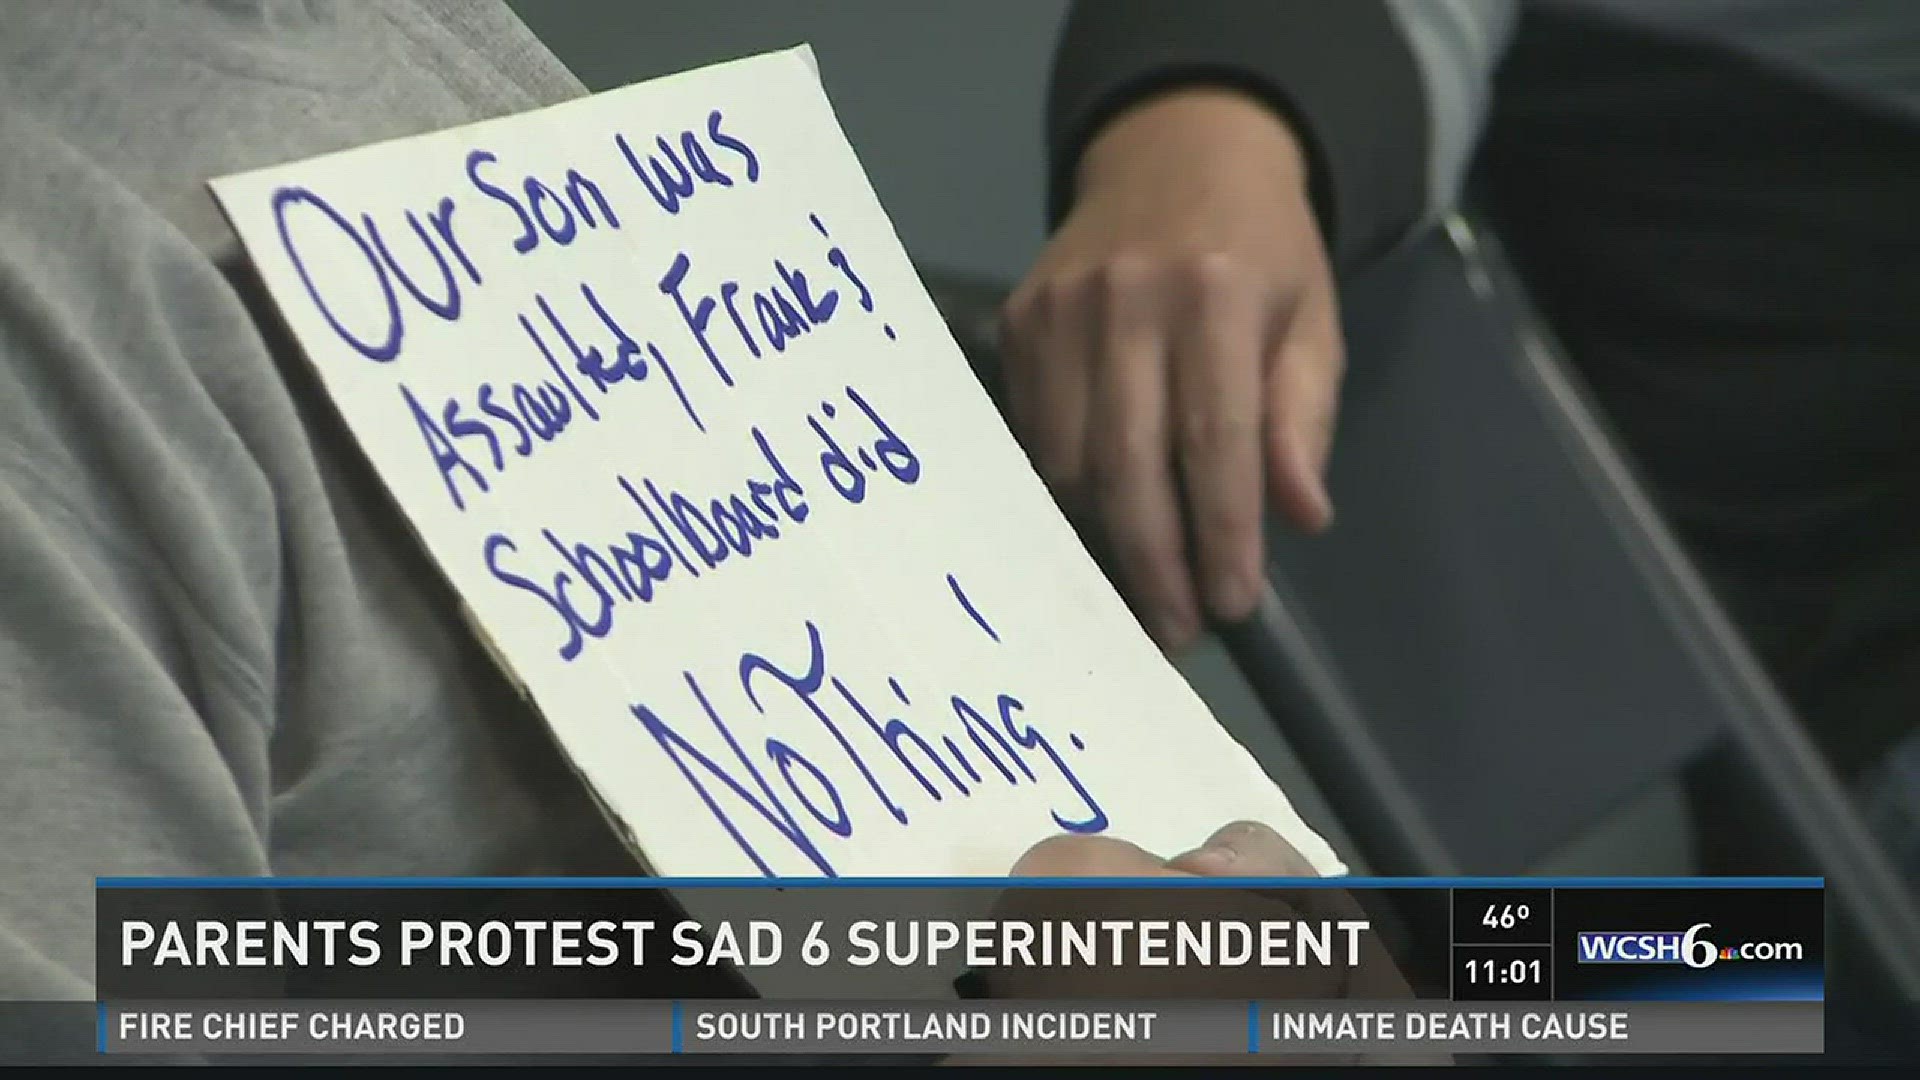 Our Son was
Assaulted, Frank &
Schoolboard did
Nothing.
PARENTS PROTEST SAD 6 SUPERINTENDENT
46°
11:01
WCSH6.com
FIRE CHIEF CHARGED
SOUTH PORTLAND INCIDENT
INMATE DEATH CAUSE